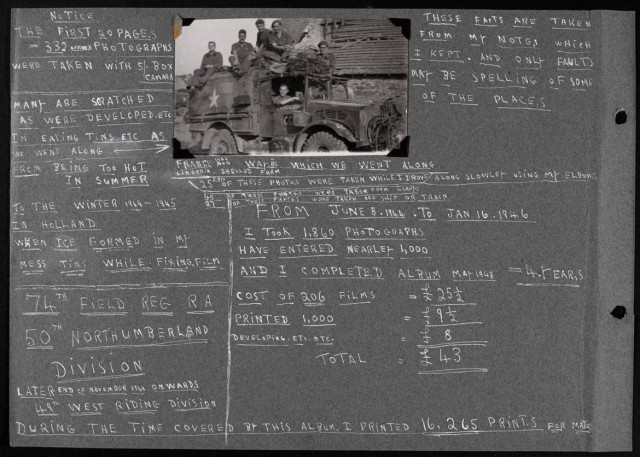 NOTICE
THE FIRST 20 PAGES
= 332 PHOTOGRAPHS
WERE TAKEN WITH 5/- BOX
CAMARA
MANY ARE SCRATCHED
AS WERE DEVELOPED.ETC
IN EATING TINS ETC AS
WE WENT ALONG
FROM BEING TOO HOT
IN SUMMER
TO THE WINTER 1944-1945
IN HOLLAND
WHEN ICE FORMED IN MY
MESS TINS WHILE FIXING FILM
74TH FIELD REG R A
50TH NORTHUMBERLAND
DIVISION
LATER END OF NOVEMBER 1944 ONWARDS
49TH WEST RIDING DIVISION
THESE FACTS ARE TAKEN
FROM MY NOTES WHICH
I KEPT. AND ONLY FAULTS
MAY BE SPELLING OF SOME
OF THE PLACES
FRANCE WAY WHICH WE WENT ALONG
SHELLED FARM
25 OF THESE PHOTOS WERE TAKEN WHILE I DROVE ALONG SLOWLEY USING MY ELBOWS
WERE TAKEN
OF THESE WERE TAKEN ON SHIP OR TRAIN
FROM JUNE 8.1944. TO JAN 16.1946
I TOOK 1,860 PHOTOGRAPHS
HAVE ENTERED NEARLEY 1,000
AND I COMPLETED ALBUM MAY 1948 = 4.YEARS
COST OF 206 FILMS = £ 25½
PRINTED 1,000 = £ 9½
DEVELOPING. ETC. ETC. = £ 8
TOTAL = £ 43
DURING THE TIME COVERED BY THIS ALBUM. I PRINTED 16,265 PRINTS FOR MATES